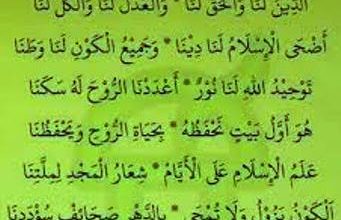 الدِّينُ لَنَا وَالْحَقُّ لَنَا * وَالْعَدْلُ لَنَا وَالْكُلُّ لَنَا
أَضْحَى الْإِسْلَامُ لَنَا دِينًا * وَجَمِيعُ الْكَوْنِ لَنَا وَطَنَا
تَوْحِيدُ اللهِ لَنَا نُورٌ * أَعْدَدْنَا الرُّوحَ لَهُ سَكَنَا
هُوَ أَوَّلُ بَيْتٍ نَحْفَظُهُ * بِحَيَاةِ الرُّوحِ وَيَحْفَظُنَا
عَلَمُ الْإِسْلَامِ عَلَى الْأَيَّامِ * شِعَارُ الْمَجْدِ لِمِلَّتِنَا
الْكَوْنُ يَزُوْلُ وَلَا تُمْحَى * بِالدَّهْرِ صَحَائِفُ سُؤْدَدِنَا